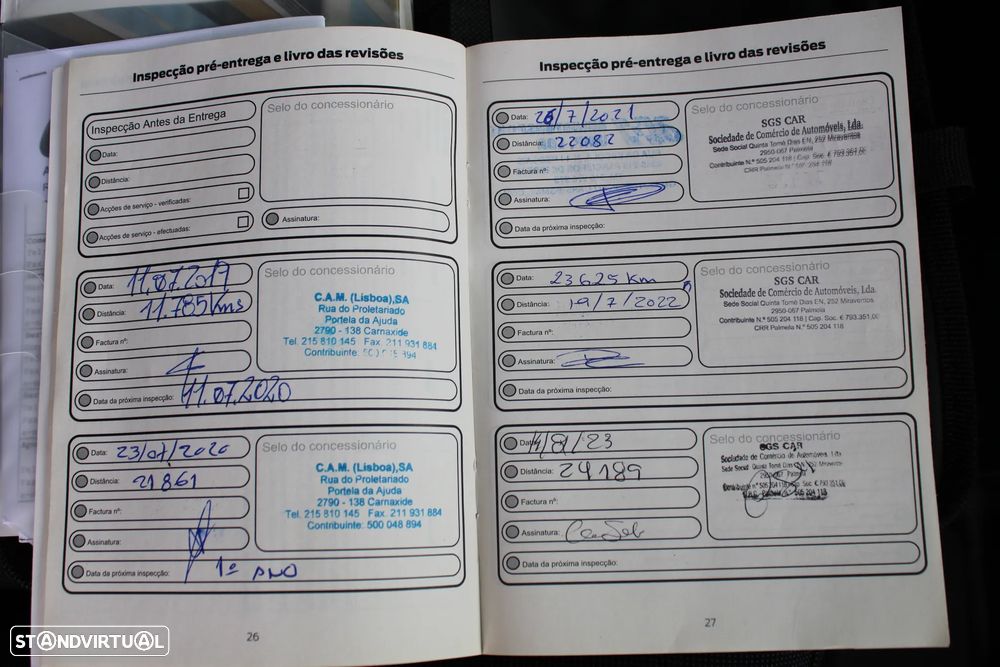 Inspecção pré-entrega e livro das revisões
Inspecção Antes da Entrega
Data:
Distância:
Acções de serviço - verificadas:
Acções de serviço - efectuadas:
Selo do concessionário
Assinatura:
Data: 11.07.2019
Distância: 11.785 Kms
Factura nº:
Assinatura:
Data da próxima inspecção: 11.07.2020
Selo do concessionário
C.A.M. (Lisboa),SA
Rua do Proletariado
Portela da Ajuda
2790 - 138 Carnaxide
Tel. 215 810 145 Fax. 211 931 884
Contribuinte: 500 894
Data: 23/07/2020
Distância: 21861
Factura nº:
Assinatura:
Data da próxima inspecção: 1º ANO
Selo do concessionário
C.A.M. (Lisboa),SA
Rua do Proletariado
Portela da Ajuda
2790 - 138 Carnaxide
Tel. 215 810 145 Fax. 211 931 884
Contribuinte: 500 048 894
26
Inspecção pré-entrega e livro das revisões
Data: 26/7/2021
Distância: 22082
Factura nº:
Assinatura:
Data da próxima inspecção:
Selo do concessionário
SGS CAR
Sociedade de Comércio de Automóveis, Lda.
Sede Social Quinta Tomé Dias EN, 252 Miraventos
2950-067 Palmela
Contribuinte N.º 505 204 118 | Cap. Soc. € 793.351,00
CRR Palmela N.º 505 204 118
Data: 23625 Km
Distância: 19/7/2022
Factura nº:
Assinatura:
Data da próxima inspecção:
Selo do concessionário
SGS CAR
Sociedade de Comércio de Automóveis, Lda.
Sede Social Quinta Tomé Dias EN, 252 Miraventos
2950-067 Palmela
Contribuinte N.º 505 204 118 | Cap. Soc. € 793.351,00
CRR Palmela N.º 505 204 118
Data: /8/23
Distância: 24189
Factura nº:
Assinatura:
Data da próxima inspecção:
Selo do concessionário
SGS CAR
Sociedade de Comércio de Automóveis, Lda
Sede Social Quinta Tomé Dias EN, 252 Miraventos
Palmela
505 204 118
27
STANDVIRTUAL